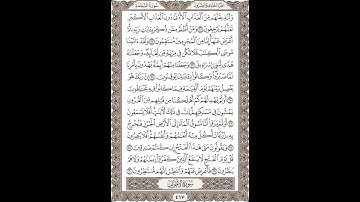 الجزء الحادي والعشرون سورة السجدة
وَلَنُذِيقَنَّهُم مِّنَ ٱلْعَذَابِ ٱلْأَدْنَىٰ دُونَ ٱلْعَذَابِ ٱلْأَكْبَرِ
لَعَلَّهُمْ يَرْجِعُونَ ٢١ وَمَنْ أَظْلَمُ مِمَّن ذُكِّرَ بِـَٔايَٰتِ رَبِّهِۦ ثُمَّ
أَعْرَضَ عَنْهَآ إِنَّا مِنَ ٱلْمُجْرِمِينَ مُنتَقِمُونَ ٢٢ وَلَقَدْ ءَاتَيْنَا
مُوسَى ٱلْكِتَٰبَ فَلَا تَكُن فِى مِرْيَةٍ مِّن لِّقَآئِهِۦ وَجَعَلْنَٰهُ
هُدًى لِّبَنِىٓ إِسْرَٰٓءِيلَ ٢٣ وَجَعَلْنَا مِنْهُمْ أَئِمَّةً يَهْدُونَ بِأَمْرِنَا
لَمَّا صَبَرُوا۟ وَكَانُوا۟ بِـَٔايَٰتِنَا يُوقِنُونَ ٢٤ إِنَّ رَبَّكَ هُوَ
يَفْصِلُ بَيْنَهُمْ يَوْمَ ٱلْقِيَٰمَةِ فِيمَا كَانُوا۟ فِيهِ يَخْتَلِفُونَ
٢٥ أَوَلَمْ يَهْدِ لَهُمْ كَمْ أَهْلَكْنَا مِن قَبْلِهِم مِّنَ ٱلْقُرُونِ
يَمْشُونَ فِى مَسَٰكِنِهِمْ إِنَّ فِى ذَٰلِكَ لَـَٔايَٰتٍ أَفَلَا يَسْمَعُونَ
٢٦ أَوَلَمْ يَرَوْا۟ أَنَّا نَسُوقُ ٱلْمَآءَ إِلَى ٱلْأَرْضِ ٱلْجُرُزِ فَنُخْرِجُ
بِهِۦ زَرْعًا تَأْكُلُ مِنْهُ أَنْعَٰمُهُمْ وَأَنفُسُهُمْ أَفَلَا يُبْصِرُونَ
٢٧ وَيَقُولُونَ مَتَىٰ هَٰذَا ٱلْفَتْحُ إِن كُنتُمْ صَٰدِقِينَ ٢٨
قُلْ يَوْمَ ٱلْفَتْحِ لَا يَنفَعُ ٱلَّذِينَ كَفَرُوٓا۟ إِيمَٰنُهُمْ وَلَا هُمْ
يُنظَرُونَ ٢٩ فَأَعْرِضْ عَنْهُمْ وَٱنتَظِرْ إِنَّهُم مُّنتَظِرُونَ ٣٠
سُورَةُ الأَحْزَابِ
٤١٧